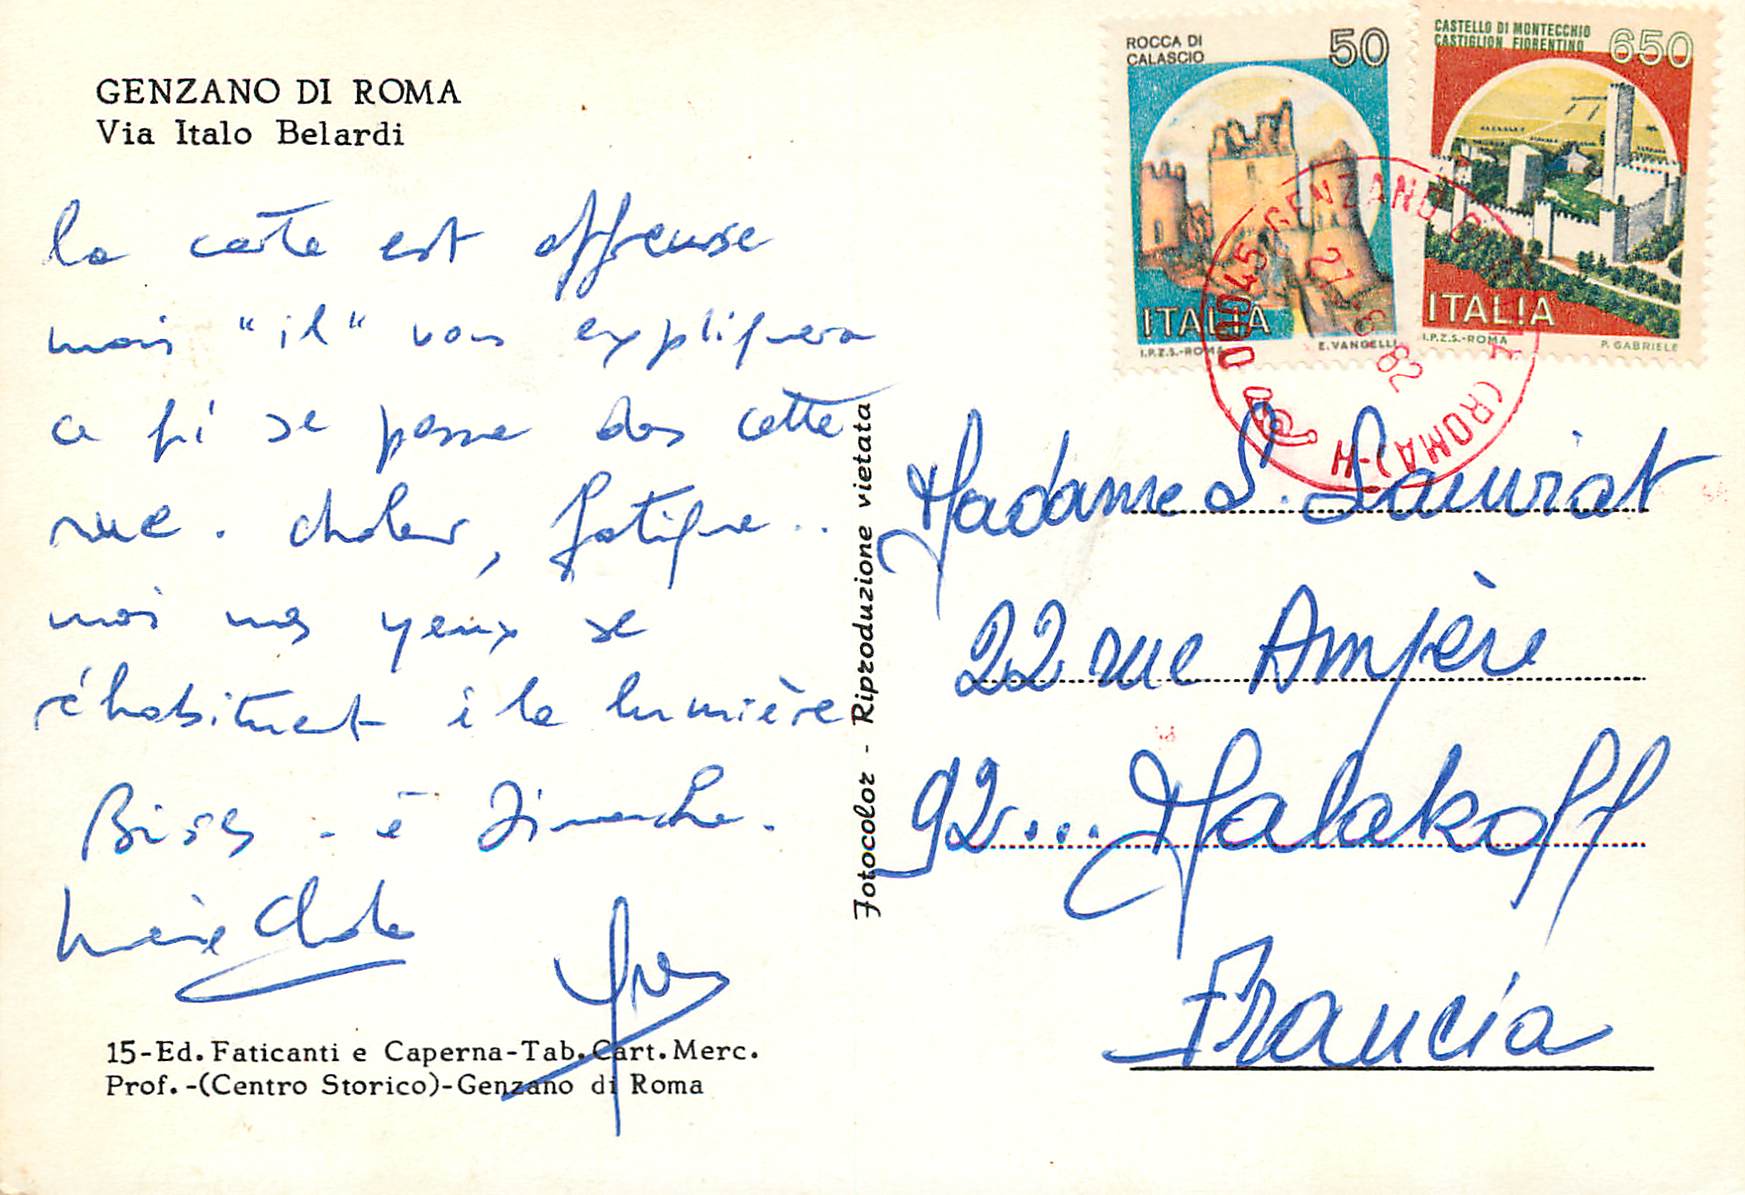 GENZANO DI ROMA
Via Italo Belardi
la carte est affreuse
mais "il" vous expliquera
ce qui se passe dans cette
rue. chaleur, fatigue..
mais nos yeux se
réhabituent à la lumière
Bises - à Dimanche.
Marie Charlotte
Yves
15-Ed. Faticanti e Caperna-Tab. Cart. Merc.
Prof.-(Centro Storico)-Genzano di Roma
Fotocolor - Riproduzione vietata
ROCCA DI
CALASCIO
50
ITALIA
I.P.Z.S.-ROMA E. VANGELLI
CASTELLO DI MONTECCHIO
CASTIGLION FIORENTINO
650
ITALIA
I.P.Z.S.-ROMA P. GABRIELE
00045 GENZANO DI (ROMA)-H
82
Madame S. Lauviat
22 rue Ampère
92... Malakoff
Francia